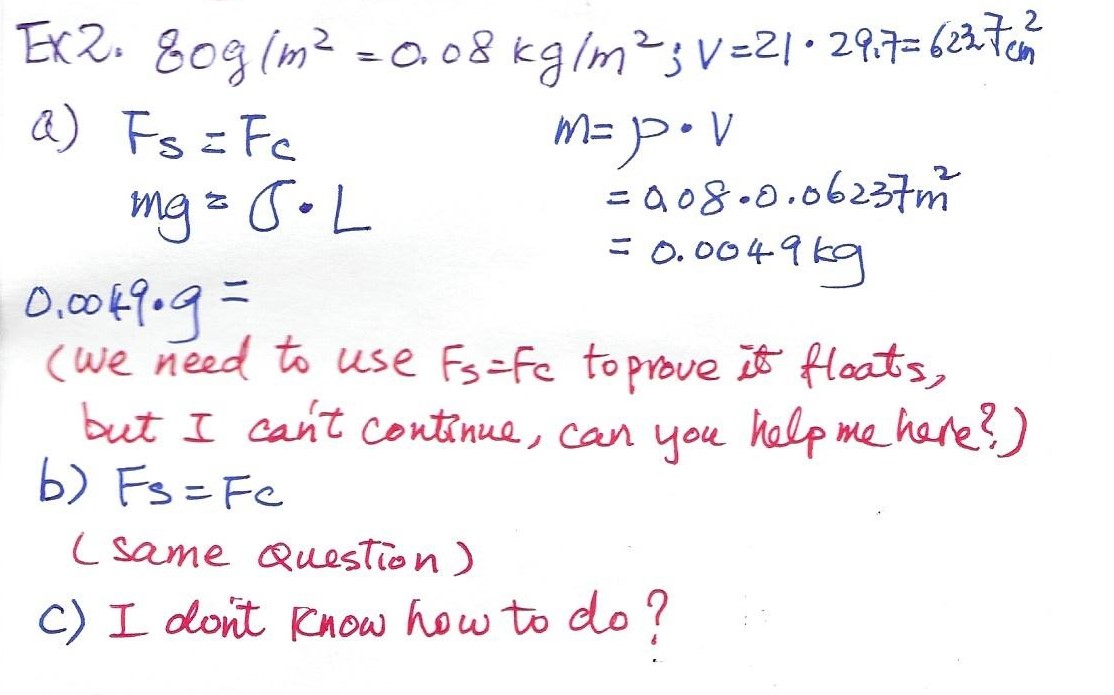 Ex2. 80g/m² = 0.08 kg/m²; V=21·29.7=623.7cm²
a) Fs = Fc
m= ρ·V
mg = σ·L
= 0.08·0.06237m²
= 0.0049kg
0.0049·g =
(We need to use Fs=Fc to prove it floats,
but I can't continue, can you help me here?)
b) Fs = Fc
(same question)
c) I don't know how to do?